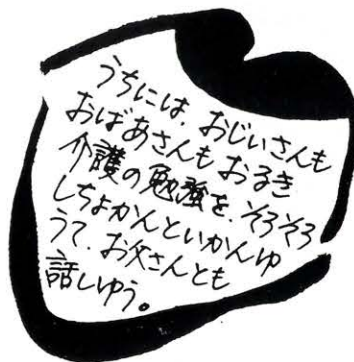 うちには、おじいさんも
おばあさんもおるき
介護の勉強を、そろそろ
しちょかんといかんゆ
うて、お父さんとも
話しゆう。